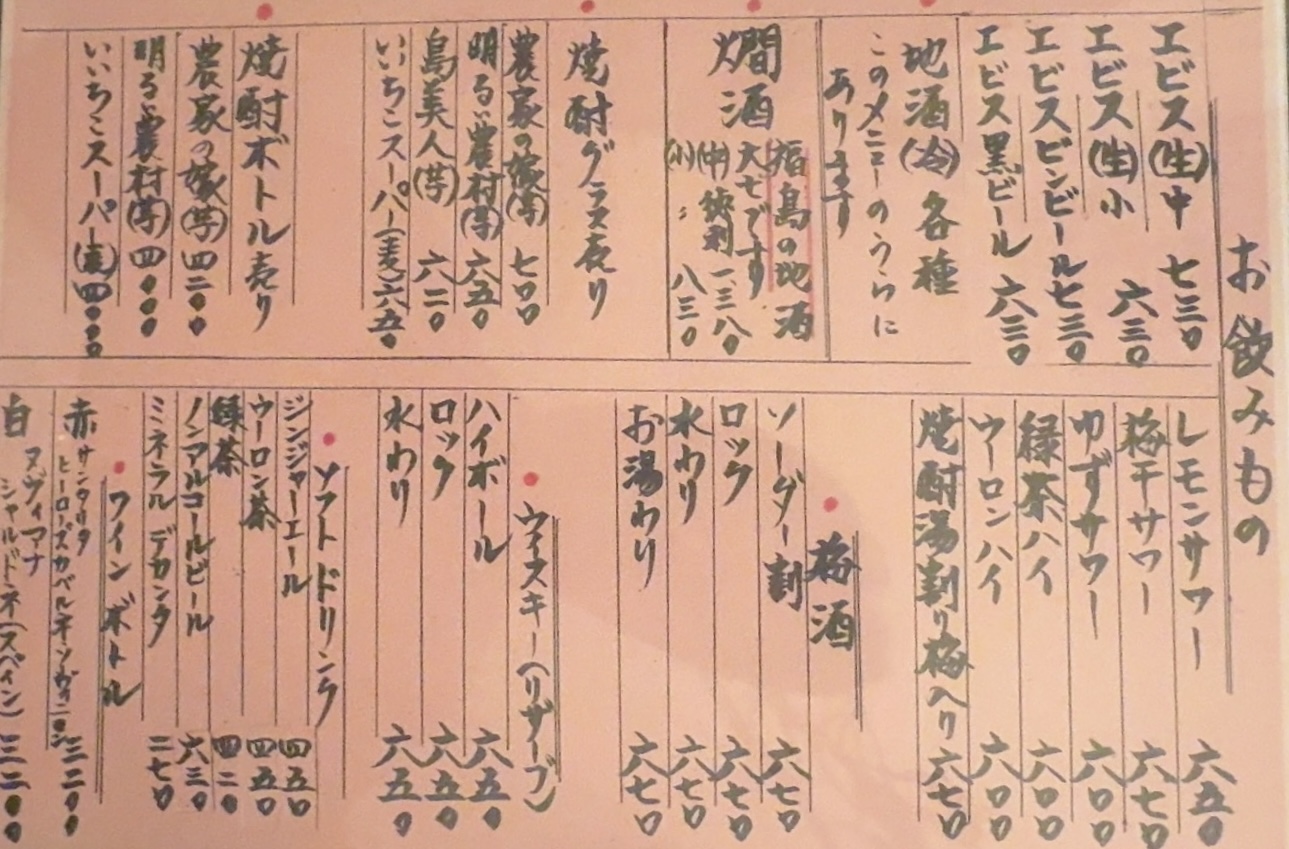 お飲みもの
エビス(生)中 七三〇
エビス(生)小 六三〇
エビスビンビール 七三〇
エビス黒ビール 六三〇
地酒(冷)各種
このメニューのうらに
あります
燗酒
福島の地酒
大七です
(中)徳利 一、三八〇
(小) 〃 八三〇
焼酎グラス売り
農家の嫁(芋) 七〇〇
明るい農村(芋) 六五〇
島美人(芋) 六二〇
いいちこスーパー(麦) 六五〇
焼酎ボトル売り
農家の嫁(芋) 四二〇〇
明るい農村(芋) 四〇〇〇
いいちこスーパー(麦) 四〇〇〇
レモンサワー 六五〇
梅干サワー 六七〇
ゆずサワー 六〇〇
緑茶ハイ 六〇〇
ウーロンハイ 六〇〇
焼酎湯割り梅入り 六七〇
梅酒
ソーダー割 六七〇
ロック 六七〇
水わり 六七〇
お湯わり 六七〇
ウイスキー(リザーブ)
ハイボール 六五〇
ロック 六五〇
水わり 六五〇
ソフトドリンク
ジンジャーエール 四五〇
ウーロン茶 四五〇
緑茶 四二〇
ノンアルコールビール 六三〇
ミネラル デカンタ 二七〇
ワインボトル
赤 サンタリタ
ヒーローズカベルネソヴィニヨン 三二〇〇
白 ヌヴィアナ
シャルドネ(スペイン) 三二〇〇